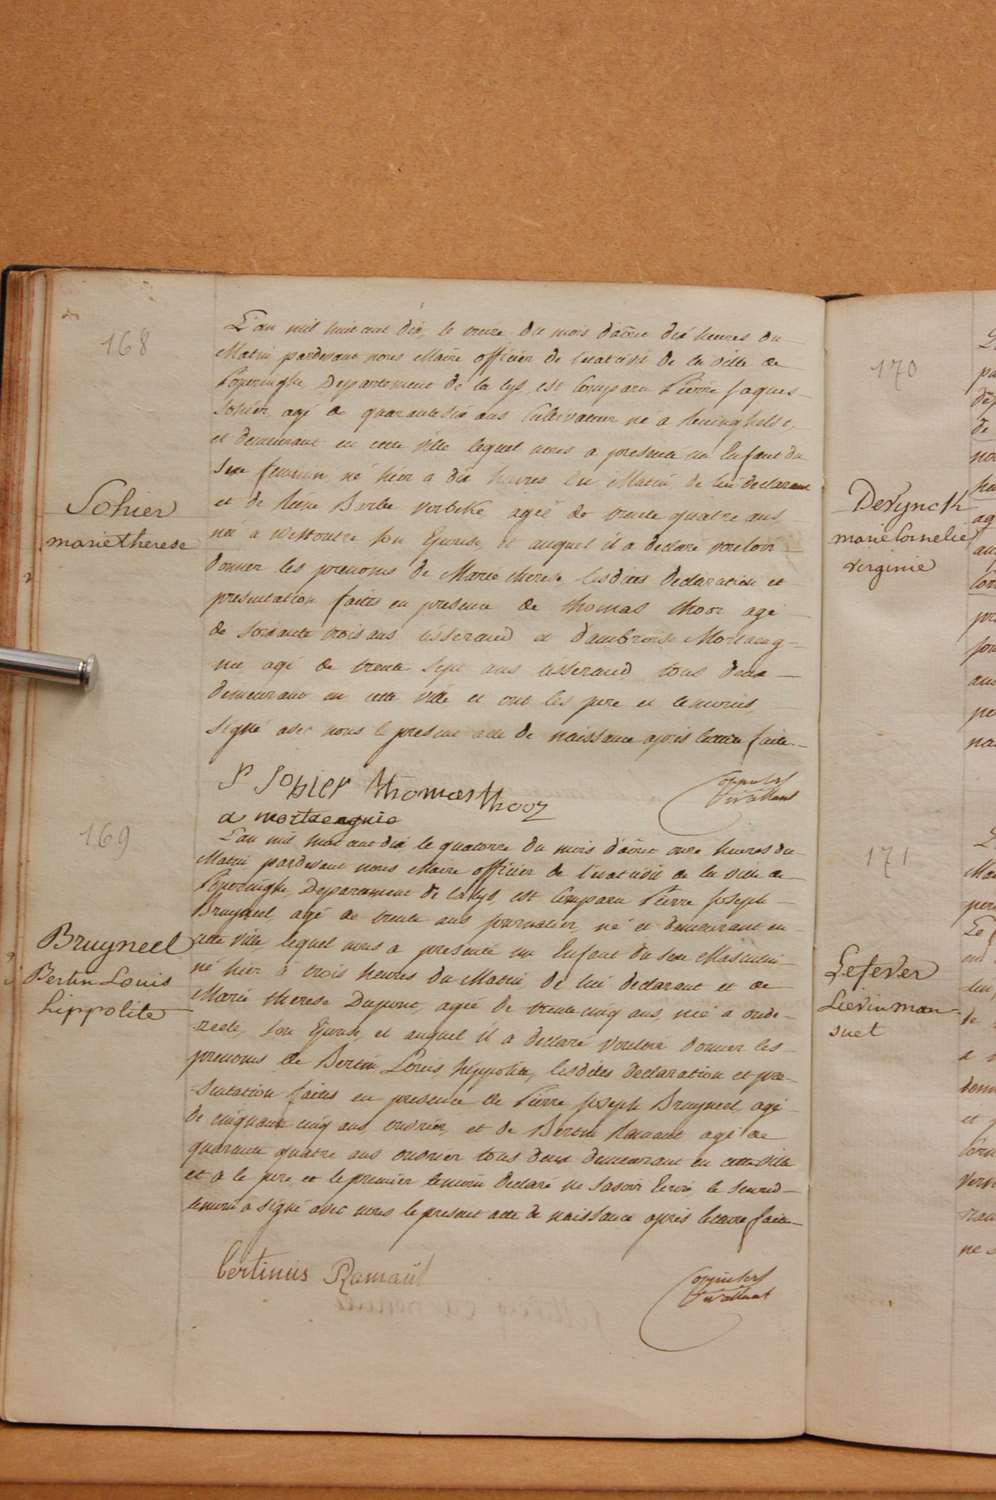 168
Sohier
marie therese
L'an mil huit cent dix, le treize du mois d'août dix heures du
Matin pardevant nous Maire officier de l'etat civil de la ville de
Poperinghe, Departement de la Lys, est Comparu Pierre Jaques
Sohier, agé de quarante six ans Cultivateur né à Reninghelst,
et demeurant en cette ville lequel nous a presenté un Enfant du
Sexe feminin, né hier à dix heures du Matin de lui declarant
et de Barbe agée de trente quatre ans
née à Westoutre son Epouse, et auquel il a declaré vouloir
donner les prenoms de Marie therese, lesdites declaration et
presentation faites en presence de thomas thooz agé
de soixante trois ans tisserand et d'ambroise Mortaeng=
nie agé de trente sept ans tisserand tous deux
demeurant en cette ville et ont les pere et temoins
signé avec nous le present acte de naissance après lecture faite
P Sohier thomas thooz
a mortaegnie
169
Bruyneel
Bertin Louis
hippolite
L'an mil huit cent dix le quatorze du mois d'août onze heures du
Matin pardevant nous Maire officier de l'etat civil de la ville de
Poperinghe, Departement de la Lys est Comparu Pierre Joseph
Bruyneel agé de trente ans journalier, né et demeurant en
cette ville lequel nous a presenté un Enfant du sexe Masculin
né hier à trois heures du Matin de lui declarant et de
Marie therese Dupont, agée de trente cinq ans, née à oude=
zeele, son Epouse, et auquel il a declaré vouloir donner les
prenoms de Bertin Louis hippolite, lesdites declaration et pre=
=sentation faites en presence de Pierre Joseph Bruyneel agé
de cinquante cinq ans, ouvrier, et de Bertin Ramaut agé de
quarante quatre ans ouvrier tous deux demeurant en cette ville
et a le pere et le premier temoin declaré ne savoir Ecrire, le second
temoin à signé avec nous le present acte de naissance après lecture faite
bertinus Ramaut
170
Devynck
marie Cornelie
virginie
171
Lefever
Lievin man=
suet